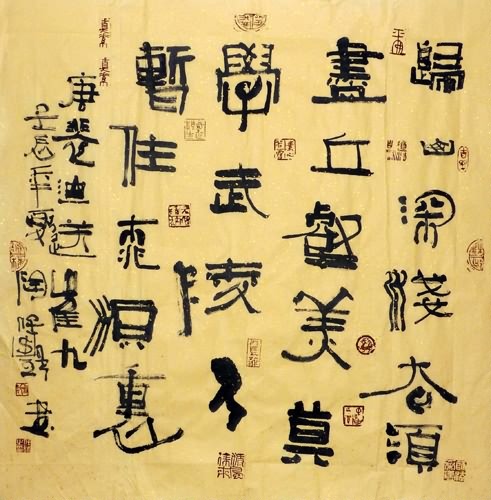 歸山深淺去須
盡丘壑美莫
學武陵人
暫住桃源裏
唐裴迪送崔九
壬辰年夏陶書